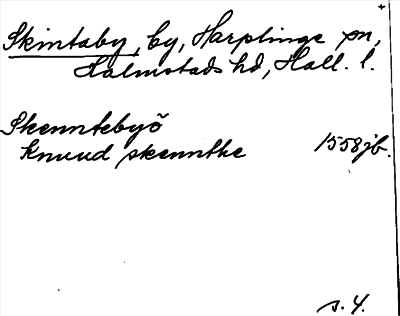 Skintaby, by, Harplinge sn,
Halmstads hd, Hall. l.
Skenntebyö
Knuud skennthe 1558 jb.
s. 4.